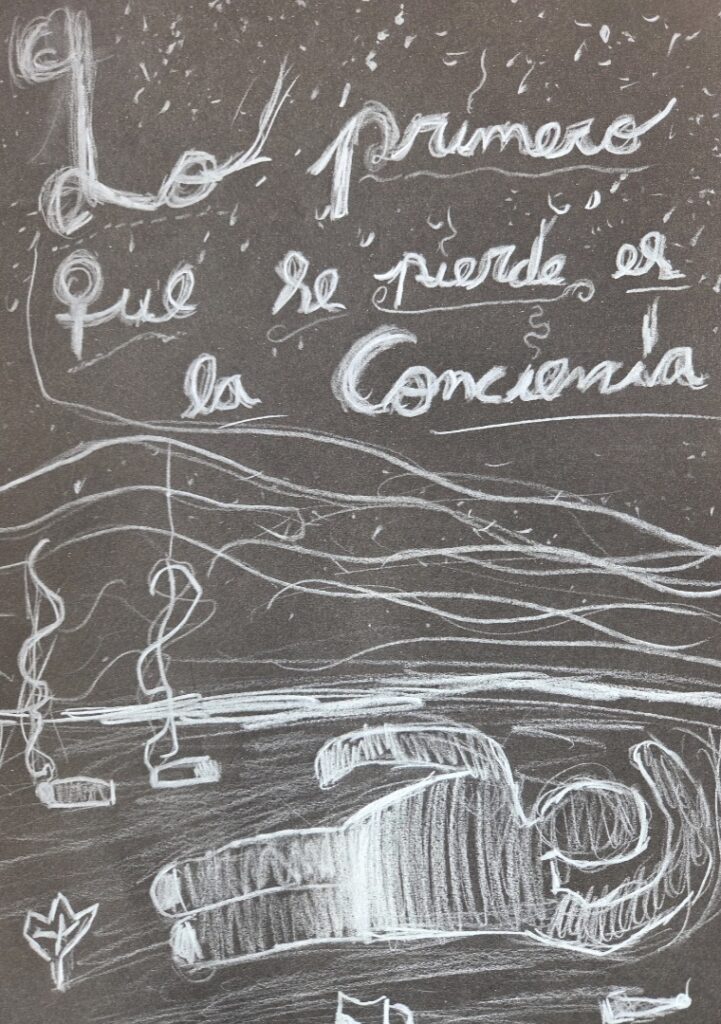 Lo primero
que se pierde es
la Conciencia